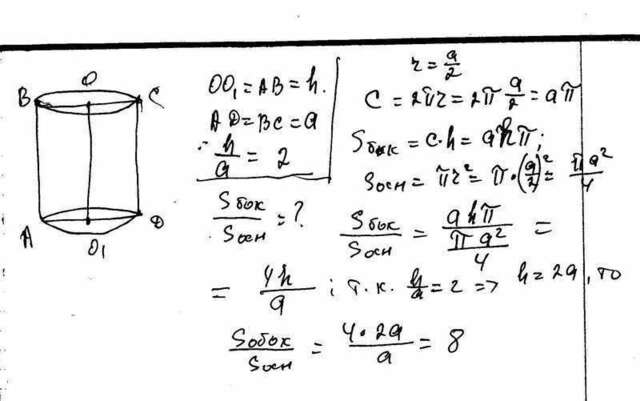 O
B
C
A
D
O₁
OO₁ = AB = h.
AD = BC = a
h/a = 2
Sбок/Sосн = ?
r = a/2
C = 2πr = 2π a/2 = aπ
Sбок = c·h = ahπ;
Sосн = πr² = π·(a/2)² = πa²/4
Sбок/Sосн = ahπ / (πa²/4) =
= 4h/a ; т.к. h/a = 2 => h = 2a, то
Sбок/Sосн = 4·2a/a = 8